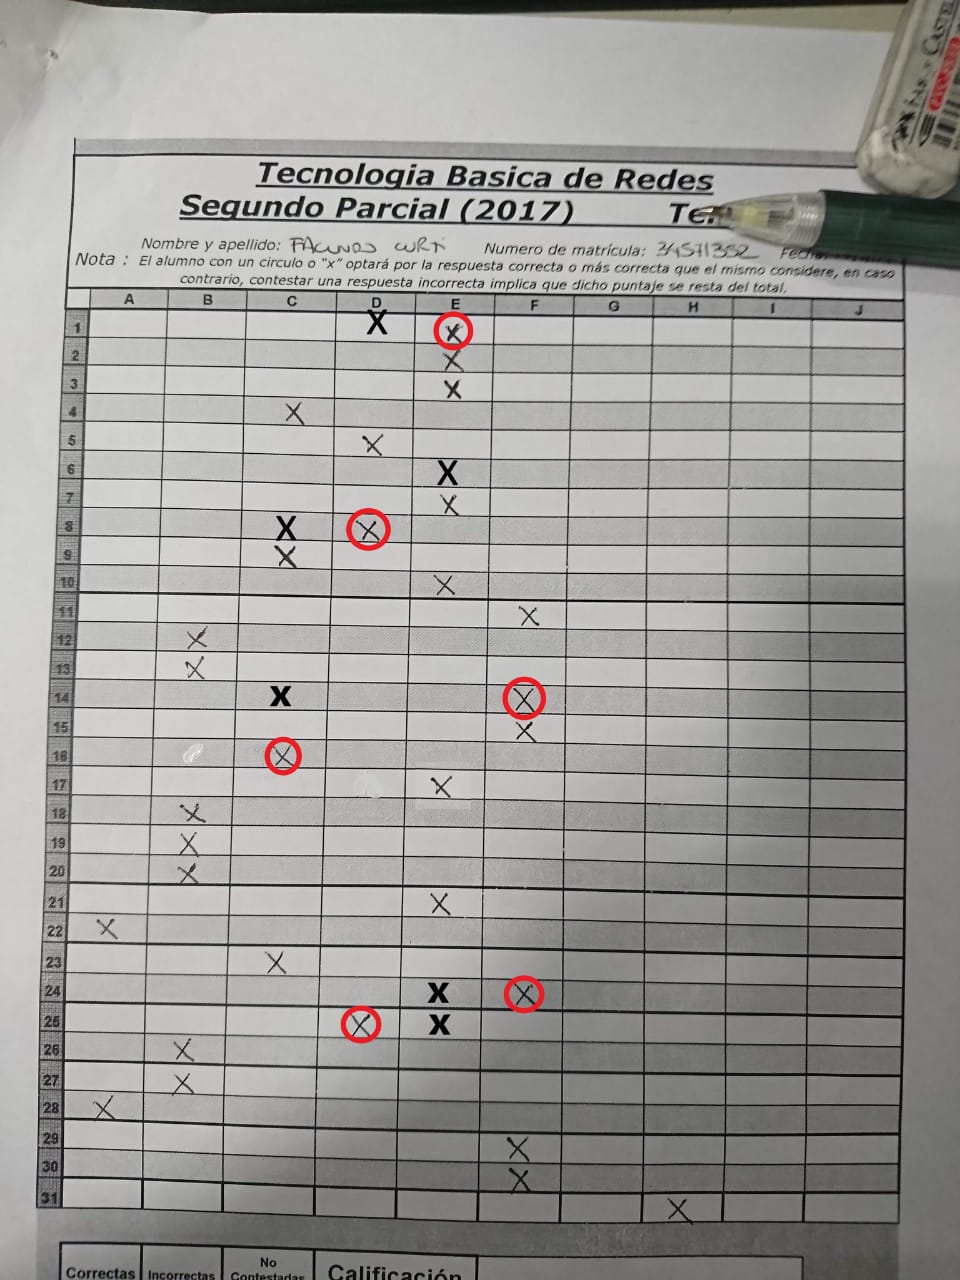 Tecnologia Basica de Redes
Segundo Parcial (2017) Te
Nombre y apellido: FACUNDO CURTI Numero de matrícula: 34571352 Fecha
Nota : El alumno con un circulo o "x" optará por la respuesta correcta o más correcta que el mismo considere, en caso
contrario, contestar una respuesta incorrecta implica que dicho puntaje se resta del total.
A B C D E F G H I J
1 X X
2 X
3 X
4 X
5 X
6 X
7 X
8 X X
9 X
10 X
11 X
12 X
13 X
14 X X
15 X
16 X
17 X
18 X
19 X
20 X
21 X
22 X
23 X
24 X X
25 X X
26 X
27 X
28 X
29 X
30 X
31 X
Correctas Incorrectas No Contestadas Calificación